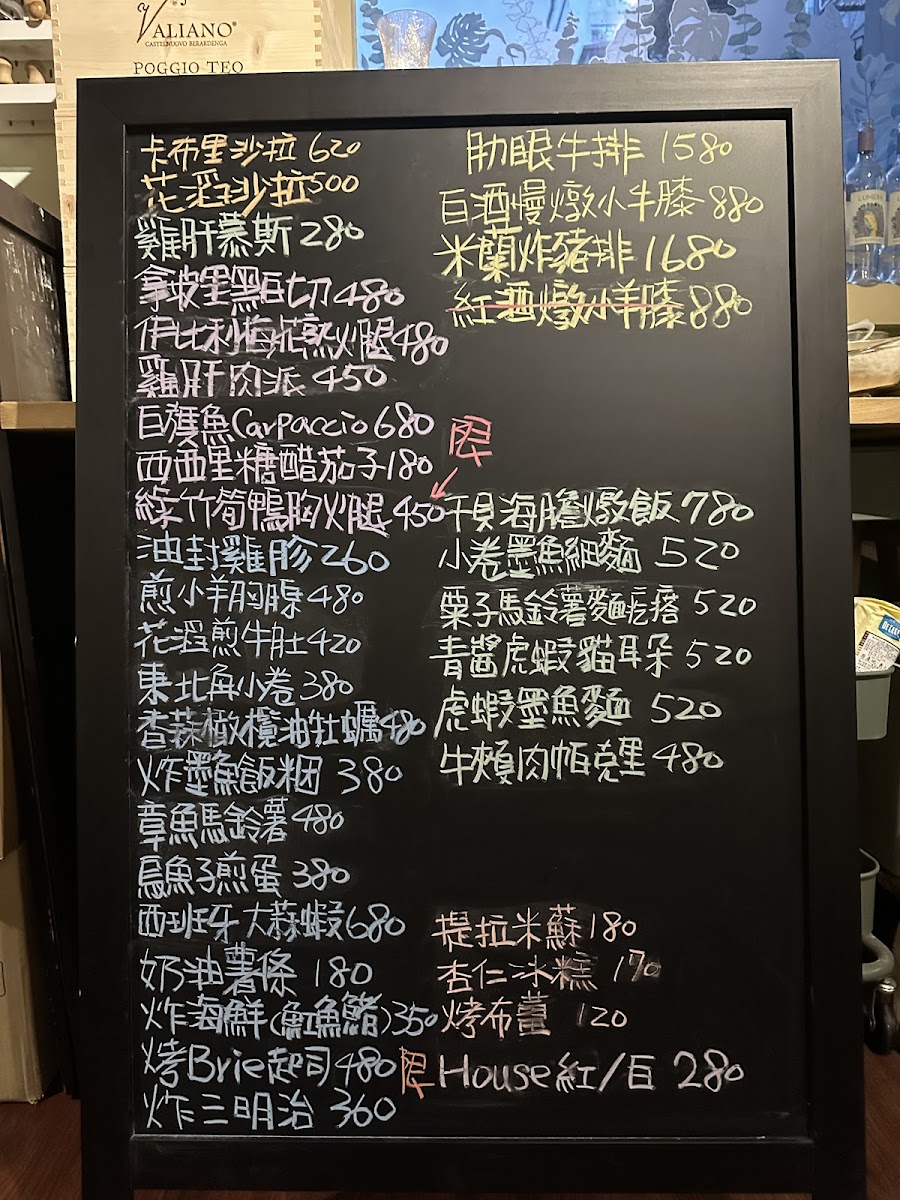 VALIANO®
CASTELNUOVO BERARDENGA
POGGIO TEO
卡布里沙拉 620
花滔沙拉 500
雞肝慕斯 280
拿坡里黑白切 480
伊比利梅花熟火腿 480
雞肝肉派 450
白旗魚Carpaccio 680
西西里糖醋茄子 180
綠竹筍鴨胸火腿 450
限
油封雞胗 260
煎小羊胸腺 480
花滔煎牛肚 420
東北角小卷 380
杏蒜橄欖油牡蠣 480
炸墨魚飯糰 380
章魚馬鈴薯 480
烏魚子煎蛋 380
西班牙大蒜蝦 680
奶油薯條 180
炸海鮮(魟魚鰭) 350
烤Brie起司 480 限
炸三明治 360
肋眼牛排 1580
白酒慢燉小牛膝 880
米蘭炸豬排 1680
紅酒燉小羊膝 880
干貝海膽燉飯 780
小卷墨魚細麵 520
栗子馬鈴薯麵疙瘩 520
青醬虎蝦貓耳朵 520
虎蝦墨魚麵 520
牛頰肉帕克里 480
提拉米蘇 180
杏仁冰糕 170
烤布蕾 120
House紅/白 280